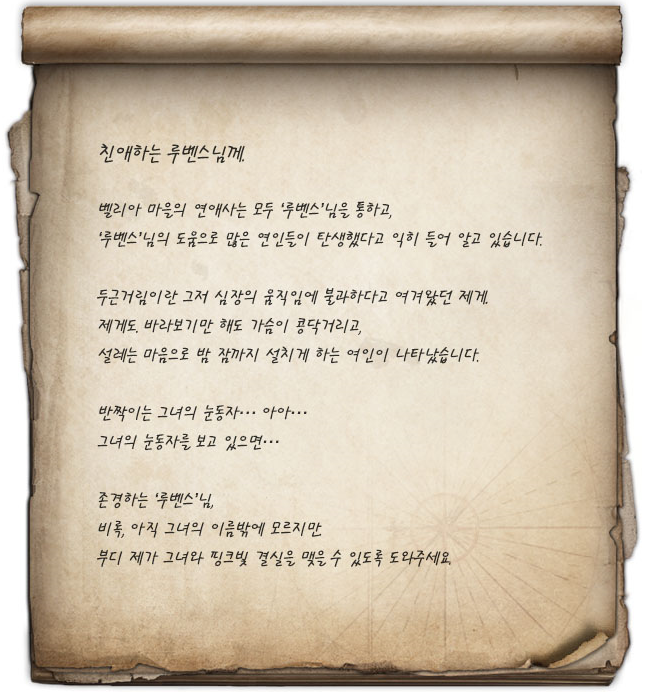 친애하는 루벤스님께.
벨리아 마을의 연애사는 모두 '루벤스'님을 통하고,
'루벤스'님의 도움으로 많은 연인들이 탄생했다고 익히 들어 알고 있습니다.
두근거림이란 그저 심장의 움직임에 불과하다고 여겨왔던 제게.
제게도. 바라보기만 해도 가슴이 콩닥거리고,
설레는 마음으로 밤 잠까지 설치게 하는 여인이 나타났습니다.
반짝이는 그녀의 눈동자··· 아아···
그녀의 눈동자를 보고 있으면···
존경하는 '루벤스'님,
비록, 아직 그녀의 이름밖에 모르지만
부디 제가 그녀와 핑크빛 결실을 맺을 수 있도록 도와주세요.